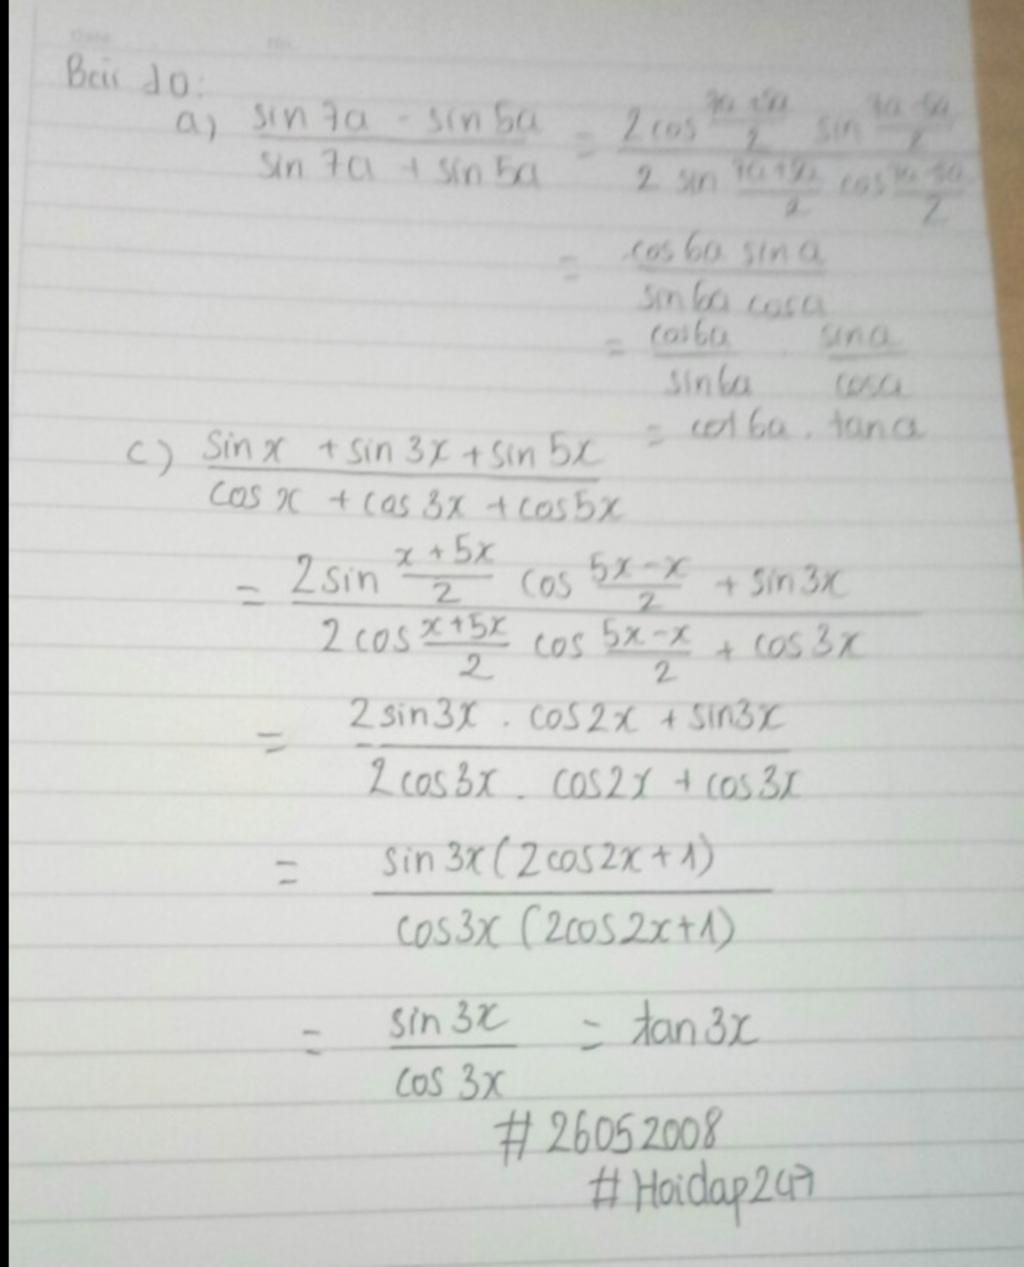 Bài 10:
a) \frac{sin 7a - sin 5a}{sin 7a + sin 5a} = \frac{2 cos \frac{7a + 5a}{2} sin \frac{7a - 5a}{2}}{2 sin \frac{7a + 5a}{2} cos \frac{7a - 5a}{2}}
= \frac{cos 6a sin a}{sin 6a cos a}
= \frac{cos 6a}{sin 6a} . \frac{sin a}{cos a}
= cot 6a . tan a
c) \frac{sin x + sin 3x + sin 5x}{cos x + cos 3x + cos 5x}
= \frac{2 sin \frac{x + 5x}{2} cos \frac{5x - x}{2} + sin 3x}{2 cos \frac{x + 5x}{2} cos \frac{5x - x}{2} + cos 3x}
= \frac{2 sin 3x . cos 2x + sin 3x}{2 cos 3x . cos 2x + cos 3x}
= \frac{sin 3x (2 cos 2x + 1)}{cos 3x (2 cos 2x + 1)}
= \frac{sin 3x}{cos 3x} = tan 3x
#26052008
#Hoidap247